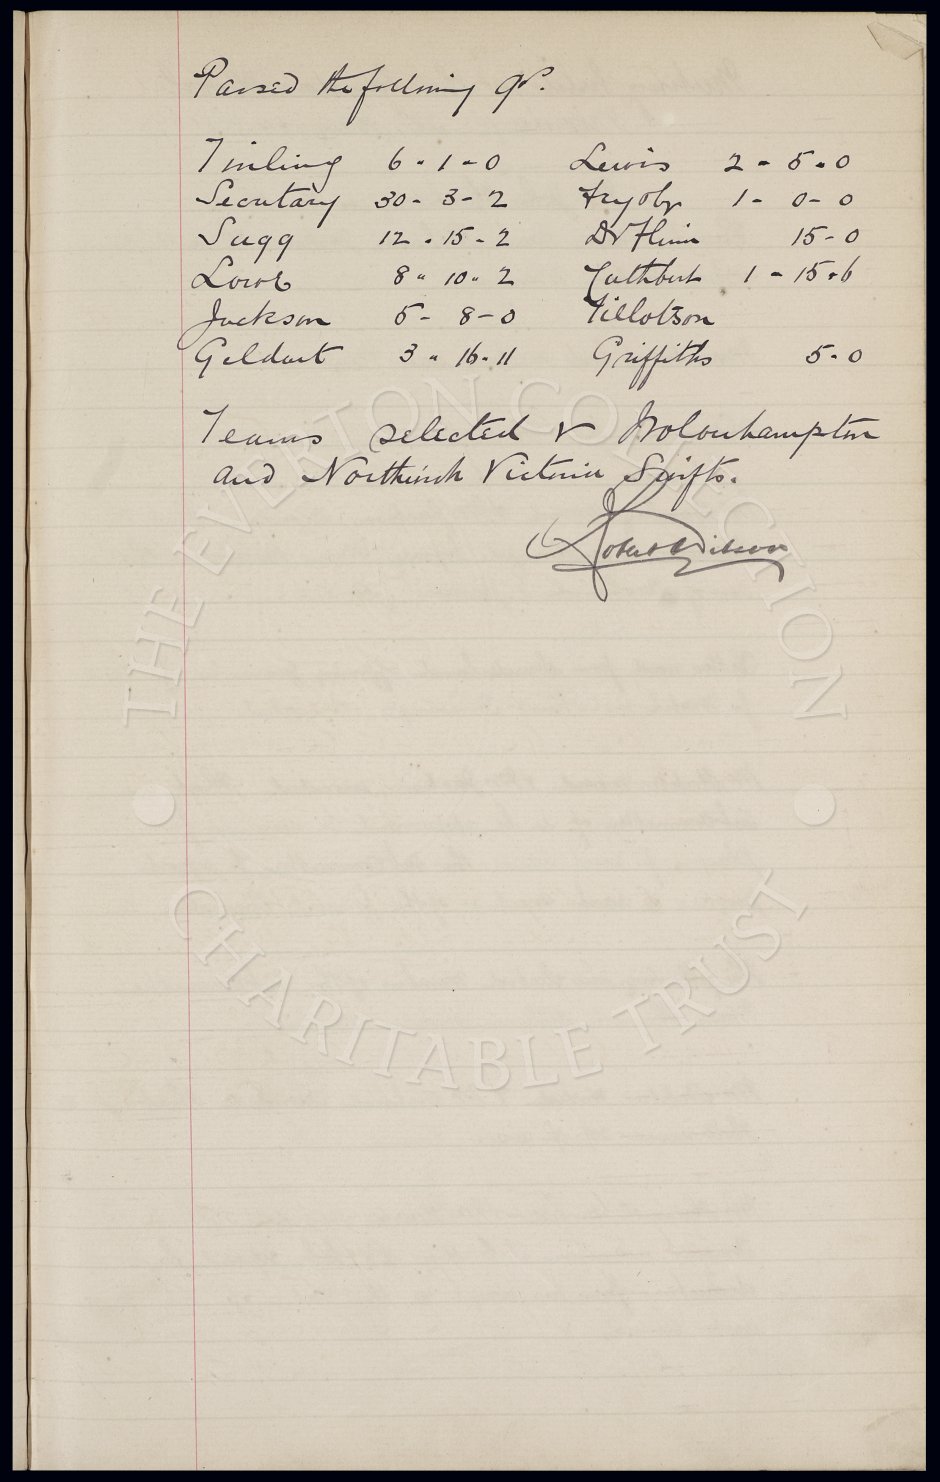 Passed the following a/cs.
Tinling 6 - 1 - 0 Lewis 2 - 5 - 0
Secretary 30 - 3 - 2 Fryoby 1 - 0 - 0
Sugg 12 - 15 - 2 Dr 15 - 0
Lowe 8 " 10 " 2 Cuthbert 1 - 15 - 6
Jackson 5 - 8 - 0 Tillotson
Geldart 3 " 16 - 11 Griffiths 5 - 0
Teams selected v Wolverhampton
and Northwich Victoria Swifts.
Robert Wilson
THE EVERTON COLLECTION
CHARITABLE TRUST